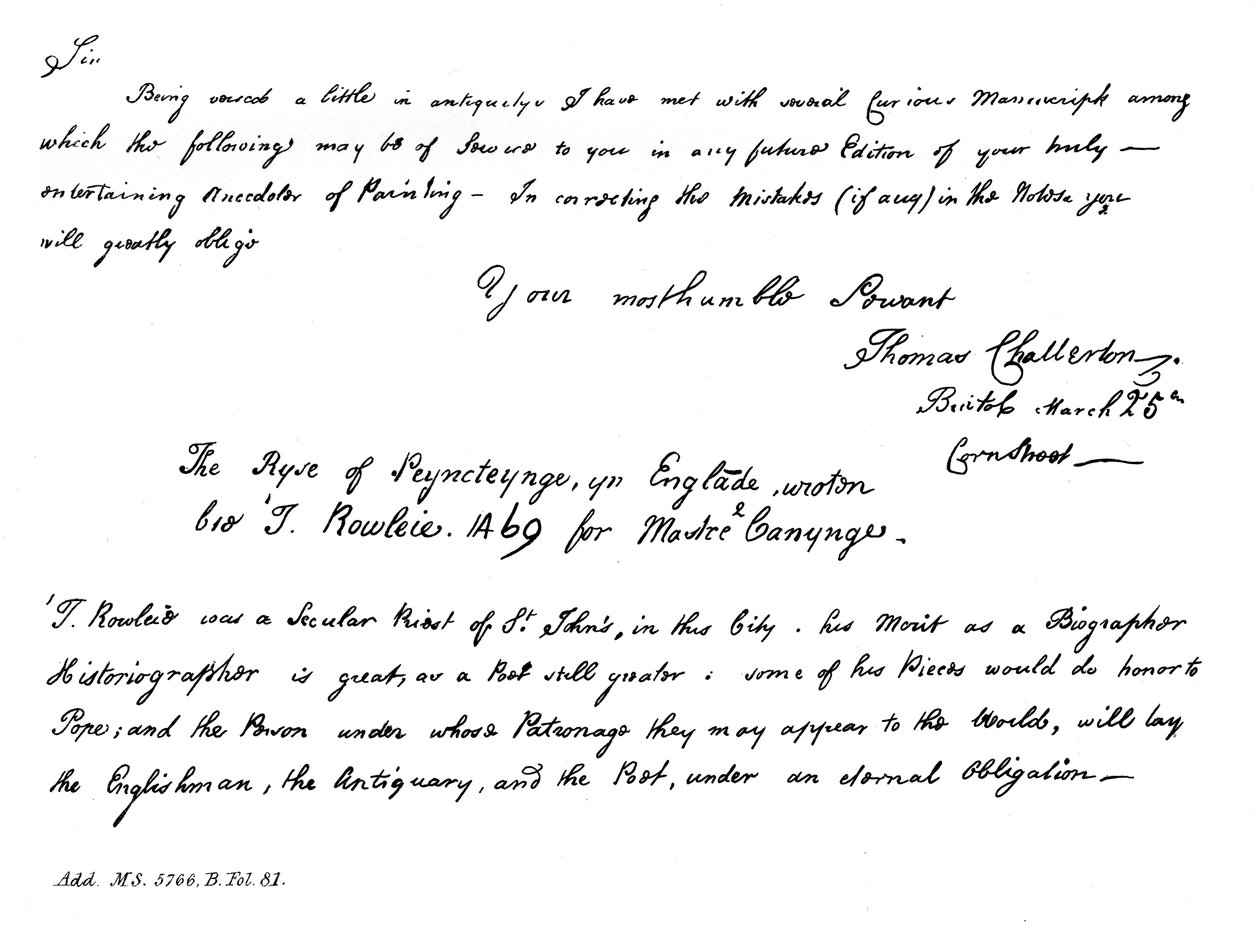 Sir
Being versed a little in antiquitys I have met with several Curious Manuscripts among
which the following may be of Service to you in any future Edition of your truly —
entertaining Anecdotes of Painting – In correcting the Mistakes (if any) in the Notes you
will greatly oblige
Your most humble Servant
Thomas Chatterton.
Bristol March 25th
Corn Street —
The Ryse of Peyncteynge, yn Englāde, wroten
bie T. Rowleie. 1469 for Mastre Canynge.
1 T. Rowleie was a Secular Priest of St. John's, in this City. his Merit as a Biographer
Historiographer is great, as a Poet still greater: some of his Pieces would do honor to
Pope; and the Person under whose Patronage they may appear to the World, will lay
the Englishman, the Antiquary, and the Poet, under an eternal Obligation —
Add. MS. 5766, B. Fol. 81.